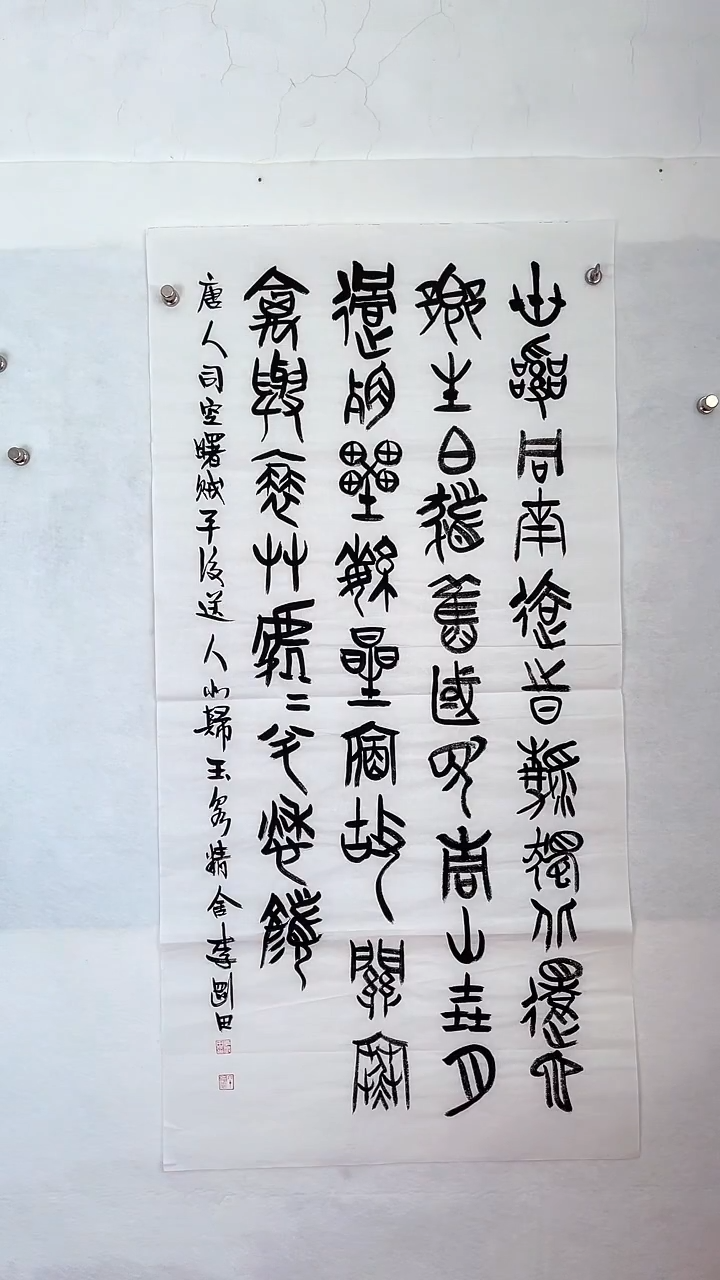 世亂同南去時清獨北還他
鄉生白髮舊國見青山曉月
過殘壘繁星宿故關寒
禽與衰草處〻伴愁顏
唐人司空曙賊平後送人北歸玉精舍李剛田